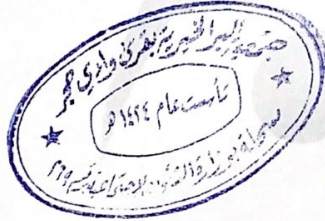 جمعية البر الخيرية بفرعي وادي حجر
تأسست عام ١٤٢٤ هـ
مسجلة بوزارة الشئون الاجتماعية برقم ٢٦٩